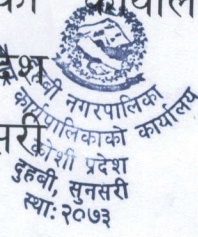 देश
नगरपालिका
कार्यपालिकाको कार्यालय
कोशी प्रदेश
दुहबी, सुनसरी
स्थाः २०७३